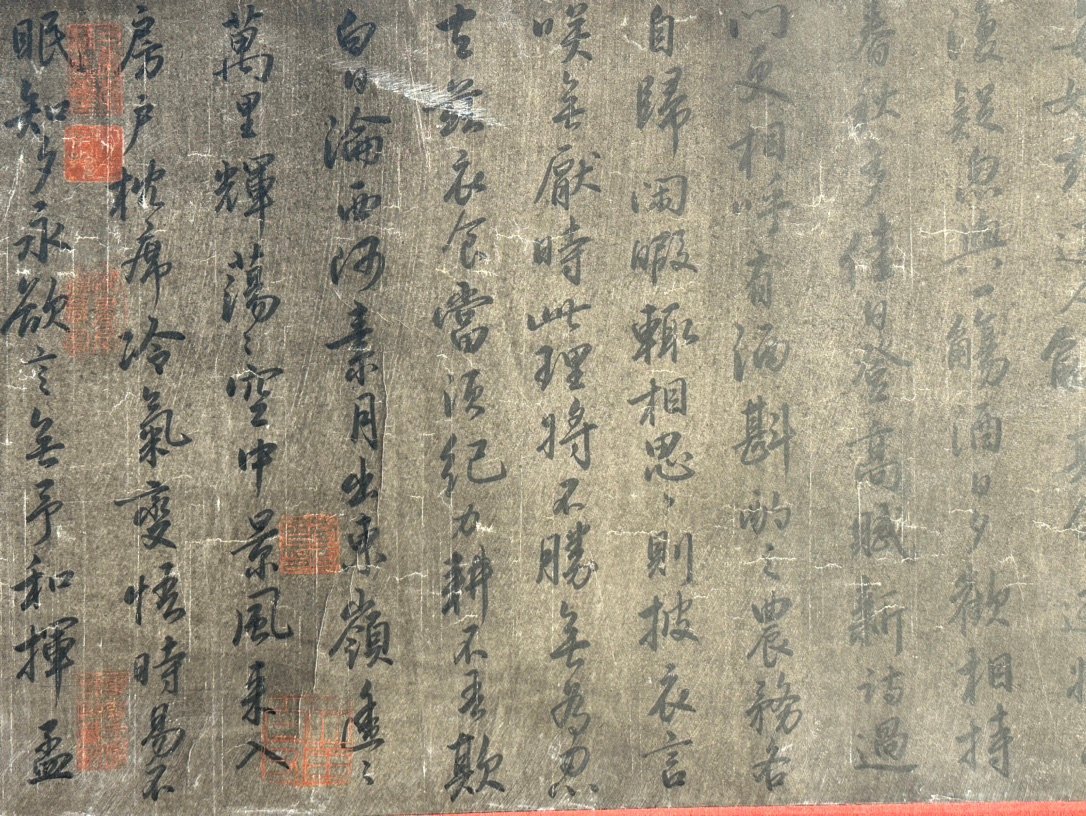 如茲達人解其會逝將
復疑忽與一觴酒日夕歡相持
春秋多佳日登高賦新詩過
門更相呼有酒斟酌之農務各
自歸閑暇輒相思〻則披衣言
咲無厭時此理將不勝無為忽
去茲衣食當須紀力耕不吾欺
白日淪西河素月出東嶺遙〻
萬里輝蕩〻空中景風来入
房戶枕席冷氣變悟時易不
眠知夕永欲言無予和揮盃